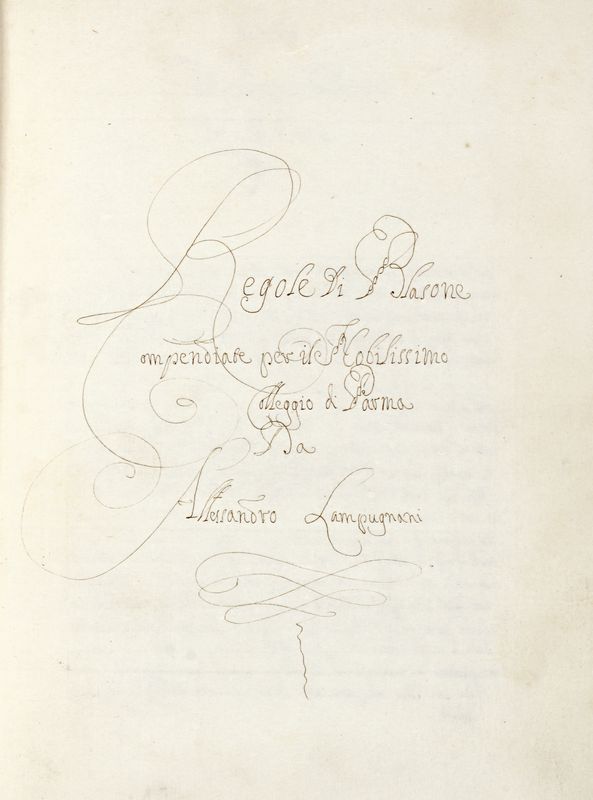 Regole di Blasone
Compendiate per il Nobilissimo
Colleggio di Parma
Da
Allessandro Lampugnani